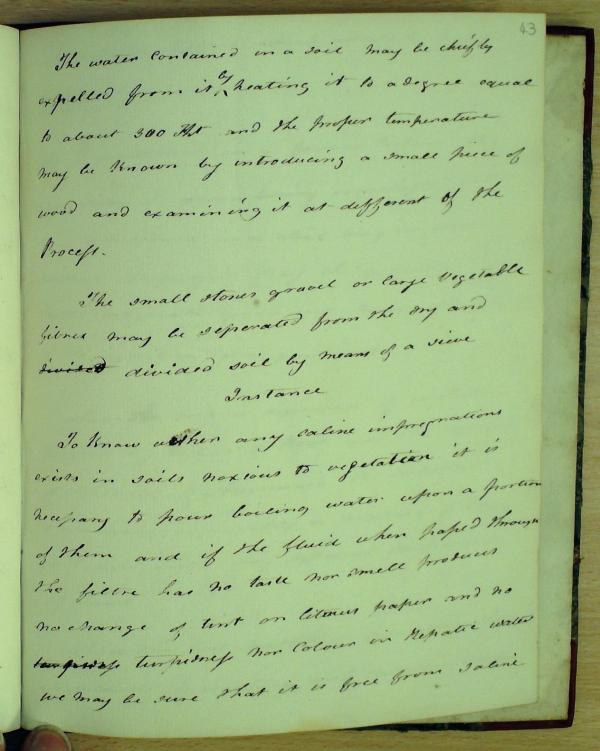 43
The water contained in a soil may be chiefly
expelled from it by heating it to a degree equal
to about 300 Fht and the proper temperature
may be known by introducing a small piece of
wood and examining it at different of the
Process.
The small stones gravel or large vegetable
fibres may be seperated from the dry and
divided divided soil by means of a sieve
Instance
To Know wether any saline impregnations
exists in soils noxious to vegetation it is
necessary to pour boiling water upon a portion
of them and if the fluid when passed through
the filtre has no taste nor smell produces
no change of tint on litmus paper and no
turpidness nor colour in Hepatic water
we may be sure that it is free from saline